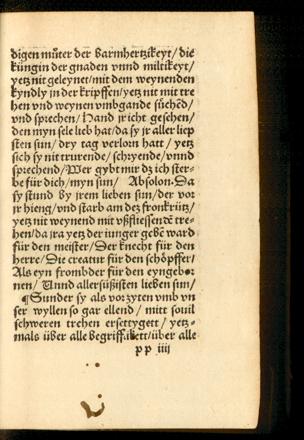 digen můter der Barmhertzikeyt/ die
küngin der gnaden vnnd miltikeyt/
yetz nit geleynet/ mit dem weynenden
kyndly in der kripffen/ yetz nit mit tre
hen vnd weynen vmbgande sůchēd/
vnd sprechen/ Hand jr icht gesehen/
den myn sele lieb hat/ da sy jr aller liep
sten sun/ dry tag verlorn hatt/ yetz
sich sy nit trurende/ schryende/ vnnd
sprechend/ Wer gybt mir dz ich ster-
be für dich/ myn sun/ Absolon. Da
sy stund by jrem lieben sun/ der vor
jr hieng/ vnd starb am dez fronkrütz/
yetz nit weynend mit vßfliessendē tre-
hen/ da jra yetz der iunger gebē ward
für den meister/ Der knecht für den
herre/ Die creatur für den schöpffer/
Als eyn frombder für den eyngebor
nen/ Vnnd allersüßisten lieben sun/
¶ Sunder sy als vorzyten vmb vn
ser wyllen so gar ellend/ mitt souil
schweren trehen ersettygett/ yetz-
mals über alle begrifflikett/ über alle
pp iiij